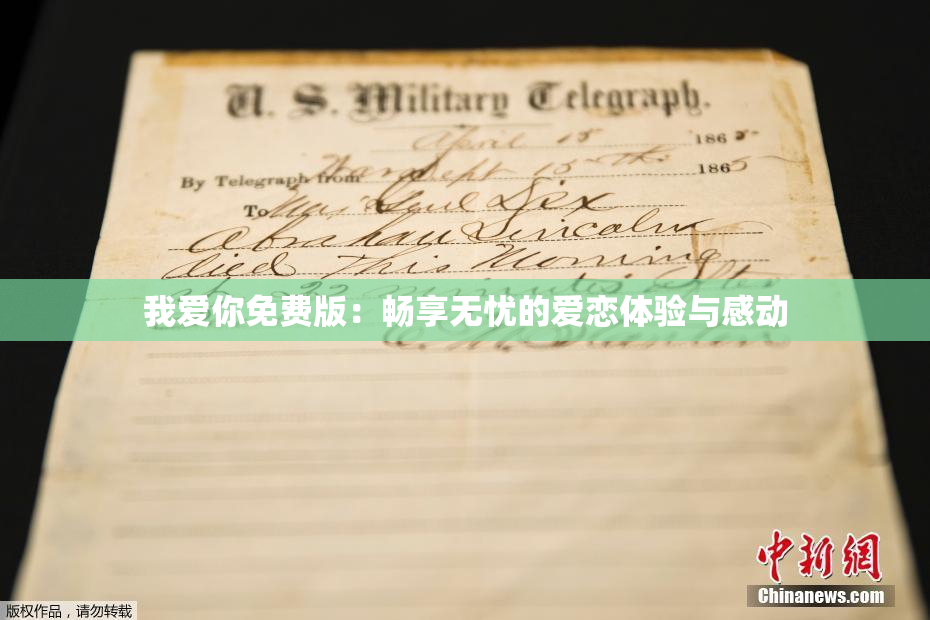 U. S. Military Telegraph.
April 15 1865
By Telegraph from War Dept 15th 1865
To Maj Genl Dix
Abraham Lincoln
died This Morning
22 minutes after
我爱你免费版：畅享无忧的爱恋体验与感动
E. M. Stanton
中新网
Chinanews.com
版权作品，请勿转载